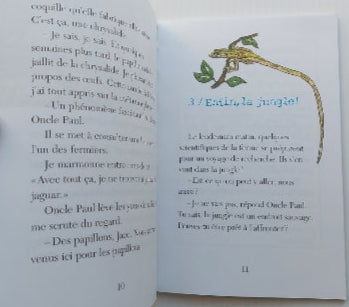 coquille qu'elle fabrique
C'est ça, une chrysalide.
– Je sais, je sais. Et quelques
semaines plus tard le papillon
jaillit de la chrysalide. Je
propos des œufs. Cette
j'ai tout appris sur la
– Un phénomène fascinant
Oncle Paul.
Il se met à
l'un des fermiers.
Je marmonne entre
« Avec tout ça, je ne
jaguar. »
Oncle Paul lève les yeux
me scrute du regard.
– Des papillons, Jace. Nous
venus ici pour les papillons
10
3 / Enfin, la jungle!
Le lendemain matin, quelques
scientifiques de la ferme se préparent
pour un voyage de recherche. Ils s'en
vont dans la jungle.
– Est-ce qu'on peut y aller, nous
aussi?
– Je ne sais pas, répond Oncle Paul.
Tu sais, la jungle est un endroit sauvage.
Penses-tu être prêt à l'affronter?
11